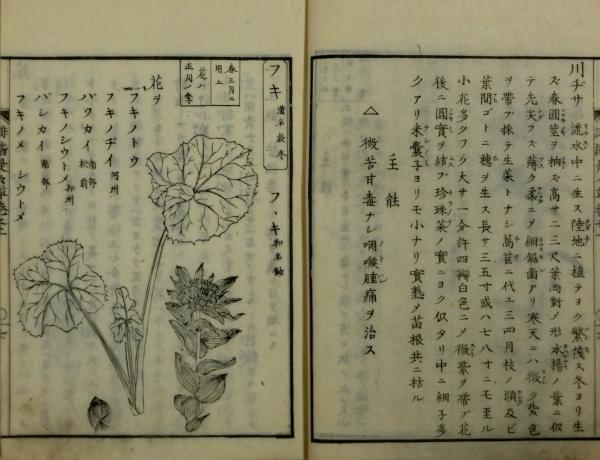 川ヂサ 流水中ニ生ス陸地ニ植テヨク繁茂ス冬ヨリ生
ズ春圓莖ヲ抽ズ高サ二三尺葉両對ノ形水楊ノ葉ニ似
テ先尖ラズ薄ク柔ニノ細鋸歯アリ寒天ニハ微ク紫色
ヲ帶ブ採テ生菜トナシ萵苣ニ代ユ三四月枝ノ頭及ビ
葉間ゴトニ穂ヲ生ス長サ三五寸或ハ七八寸ニモ至ル
小花多クツク大サ一分許四瓣白色ニノ微紫ヲ帶ブ花
後ニ圓實ヲ結ブ珍珠菜ノ實ニヨク似タリ中ニ細子多
クアリ米嚢子ヨリモ小ナリ實熟ノ苗根共ニ枯ル
主能
△ 微苦甘毒ナシ咽喉腫痛ヲ治ス
フキ 漢名款冬
フヽキ 和名鈔
春三月ニ
用ユ
花ハ
正月ノ季
花ヲ
フキノトウ
フキノヂイ 阿州
バワカイ 南部 松前
フキノシウトメ 和州
バシカイ 南部
フキノメ シウトメ